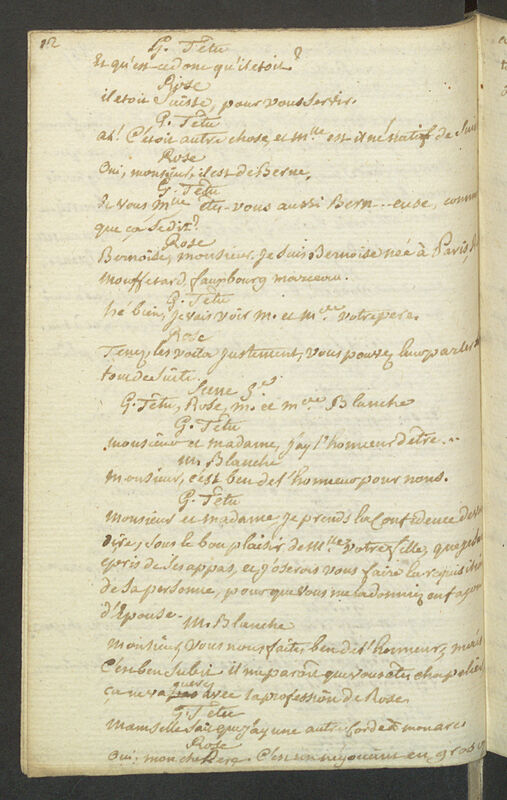 12
G. Têtu
Et qu'est-ce donc qu'il etoit?
Rose
il etoit Suisse, pour vous servir.
G. Têtu
ah! C'étoit autre chose, et m.lle est il né natif de
Rose
Oui, monsieur, il est de Berne.
G. Têtu
Et vous m.lle etes-vous aussi Bern..euse, comme
que ça se dit?
Rose
Bernoise, monsieur. je suis Bernoise née à Paris,
mouffetard, fauxbourg marceau.
G. Têtu
hé bien, je vais voir m. et m.e votre pere.
Rose
Tenez, les voila justement, vous pouvez leur parler
tout de suite.
Scene 3.e
G. Têtu, Rose, m. et m.e Blanche
G. Têtu
monsieur et madame, j'ay l'honneur d'etre...
M. Blanche
monsieur, c'est ben de l'honneur pour nous.
G. Têtu
monsieur et madame, je prends la Confidence de vous
dire, sous le bon plaisir de m.lle votre fille, que je suis
epris de ses appas, et j'oserois vous faire la requisition
de sa personne, pour que vous me la donniez en façon
d'Epouse.
M. Blanche
monsieur, vous nous faites ben de l'honneur, mais
C'est ben subit. il me paroît que vous etes chapelier,
ça ne va gueres avec la profession de Rose.
G. Têtu
mamselle sait que j'ay une autre corde à mon arc
Rose
Oui, mon cher Pere. C'est un négociant en gros